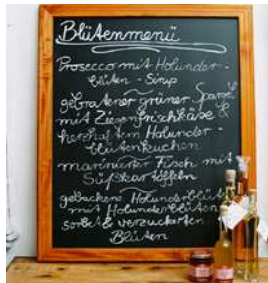 Blütenmenü
Prosecco mit Holunder-
blüten-Sirup
~
gebratener grüner Spargel
mit Ziegenfrischkäse &
herzhaftem Holunder-
blütenkuchen
~
marinierter Fisch mit
Süßkartoffeln
~
gebackene Holunderblüten
mit Holunderblüten
sorbet & verzuckerten
Blüten